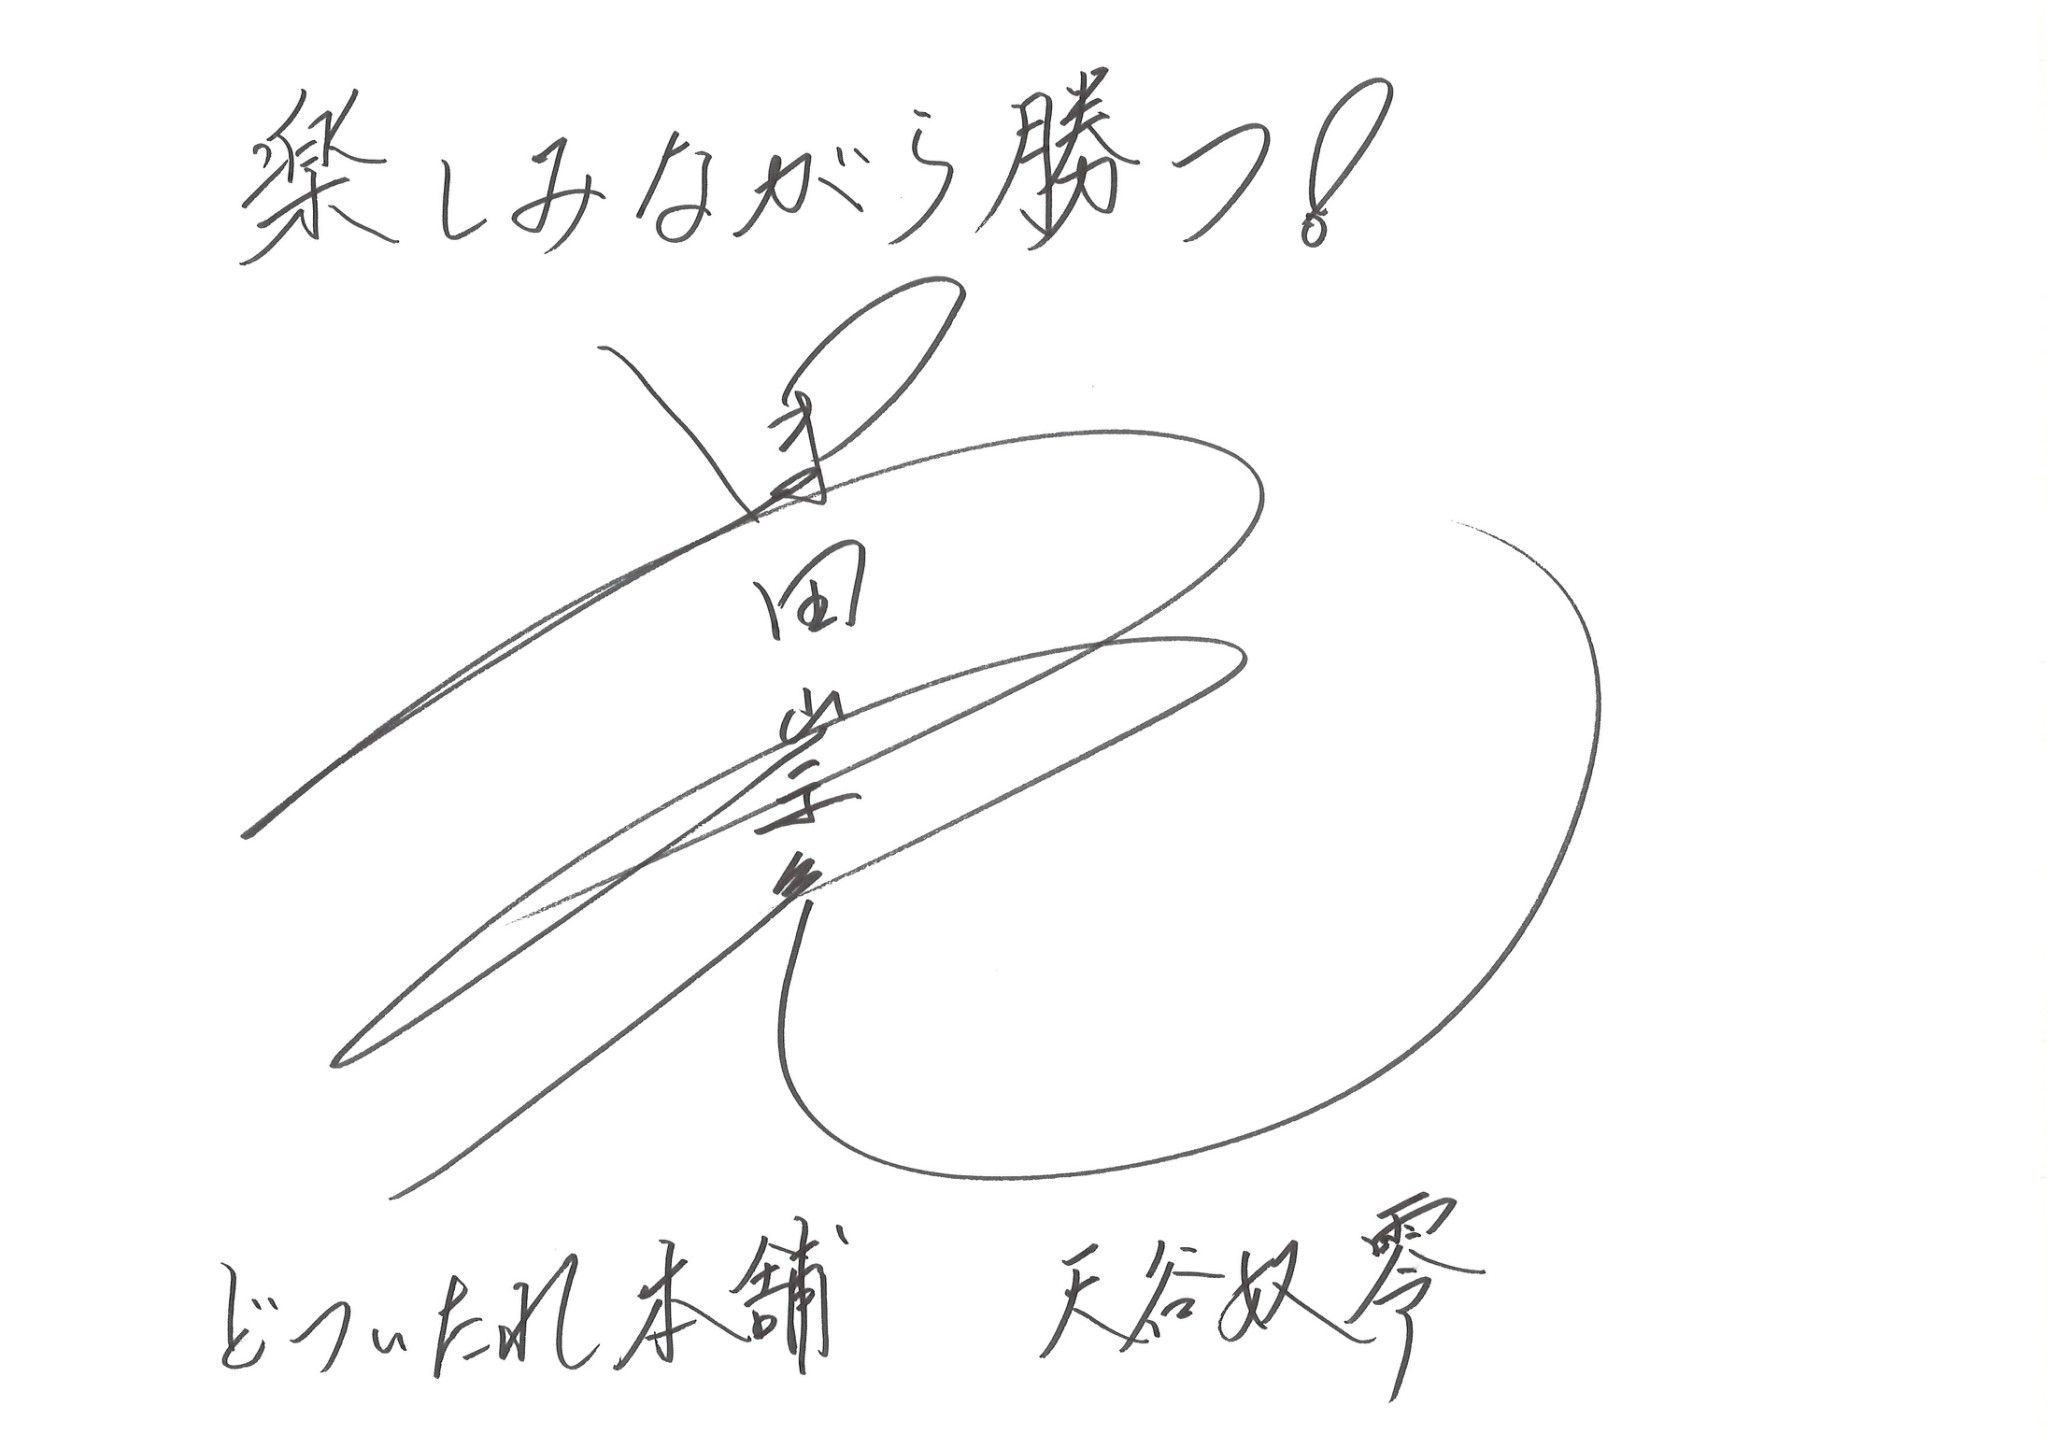 楽しみながら勝つ!
どついたれ本舗 天谷奴零